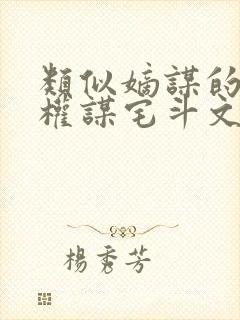 類似嫡謀的
權謀宅斗文
楊秀芳